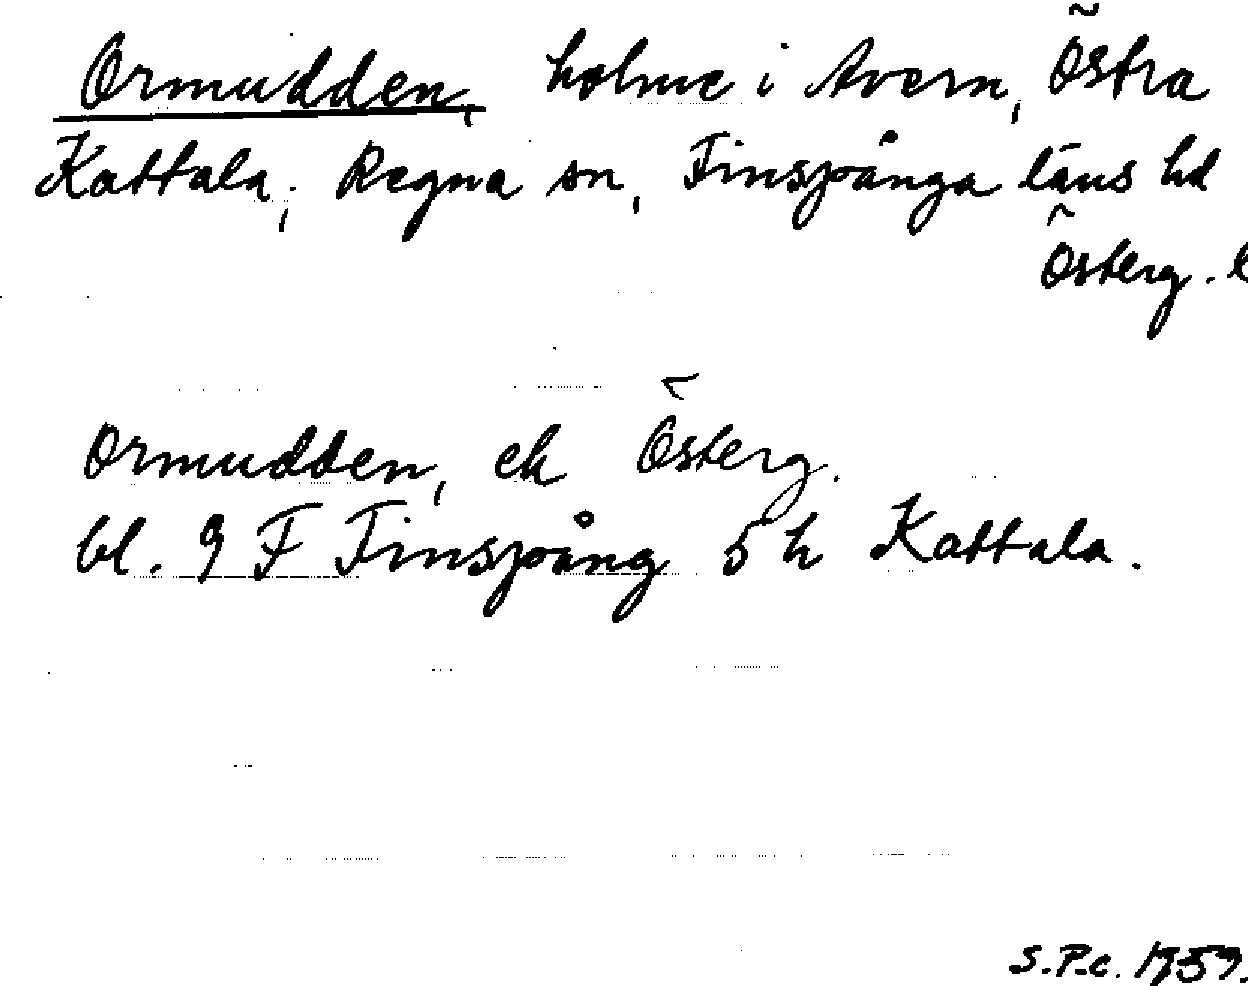 Ormudden, holme i Avern, Östra
Kattala, Regna sn, Finspånga läns hd
Österg. l
Ormudden, ek Österg.
bl. 9 F Finspång 5 h Kattala.
S.P-c. 1959.